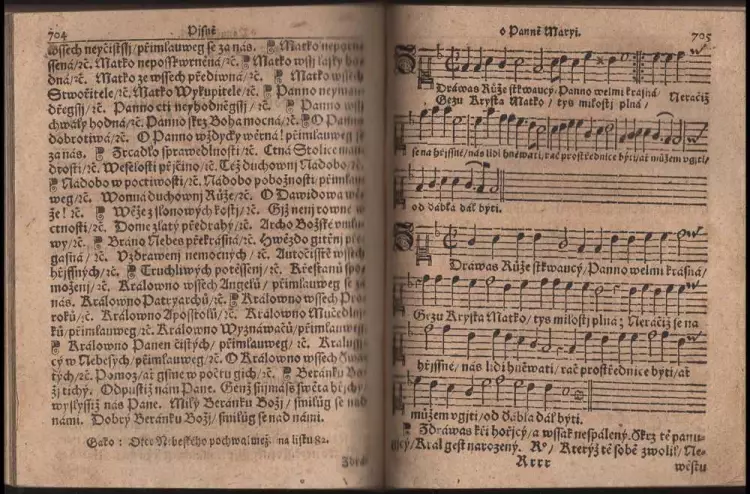 704 Pisně
wssech neyčistssj/ přimlauweg se za nás. Matko
ssená/ ꝛč. Matko neposskwrněná/ ꝛč. Matko wssj lásky
dná/ ꝛč. Matko ze wssech přediwná/ ꝛč. Matko
Stwořitele/ ꝛč. Matko Wykupitele/ ꝛč. Panno
ꝛč. Panno cti neyhodněgssj/ ꝛč. Panno
chwály hodná/ ꝛč. Panno skrz Boha mocná/ ꝛč. O Panno
dobrotiwá/ ꝛč. O Panno wždycky wěrná! přimlauweg
za nás. Zrcadlo sprawedlnosti/ ꝛč. Ctná Stolice
drosti/ ꝛč. Weselosti přjčino/ ꝛč. Též duchownj Nádobo
Nádobo w poctiwosti/ ꝛč. Nádobo pobožnosti/
weg/ ꝛč. Wonná duchownj Růže/ ꝛč. O Dawidowa
že! ꝛč. Wěže z slonowých kostj/ ꝛč. Gjž nenj rowné
ctnosti/ ꝛč. Dome zlatý předrahý/ ꝛč. Archo Božské
wy/ ꝛč. Bráno Nebes překrásná/ ꝛč. Hwězdo gitřnj
gasná/ ꝛč. Vzdrawenj nemocných/ ꝛč. Autočisstě wssech
hřjssných/ ꝛč. Truchliwých potěssenj/ ꝛč. Křestanů
moženj/ ꝛč. Králowno wssech Angelů/ přimlauweg se za
nás. Králowno Patryarchů/ ꝛč. Králowno wssech
roků/ ꝛč. Králowno Aposstolů/ ꝛč. Králowno
ků/ přimlauweg/ ꝛč. Králowno Wyznáwačů/ přimlauweg
Králowno Panen čistých/ přimlauweg/ ꝛč.
cý w Nebesých/ přimlauweg/ ꝛč. O Králowno wssech
tých/ ꝛč. Pomoz/ ať gsme w počtu gich/ ꝛč. Beránku
žj tichý. Odpustiž nám Pane. Genž snjmáss swěta hřjchy
wyslyssiž nás Pane. Milý Beránku Božj/ smilůg se nad
námi. Dobrý Beránku Božj/ smilůg se nad námi.
Gako: Otce Nebeského pochwalmež. na listu 82.
o Panně Maryi. 705
Zdráwas Růže stkwaucý/ Panno welmi krásná/
Gezu Krysta Matko/ tys milostj plná/ Neračiž
se na hřjssné/ nás lidi hněwati/ rač prostřednice býti/ ať můžem vgjti/
od ďábla dál býti.
Zdráwas Růže stkwaucý/ Panno welmi krásná/
Gezu Krysta Matko/ tys milostj plná; Neračiž se na
hřjssné/ nás lidi hněwati/ rač prostřednice býti/ ať
můžem vgjti/ od ďábla dál býti.
Zdráwas kři hořjcý/ a wssak nespálený. Skrz tě
Král gest narozený. R°/ Kterýž tě sobě zwolil/ Ne-
Rrrr wěstu